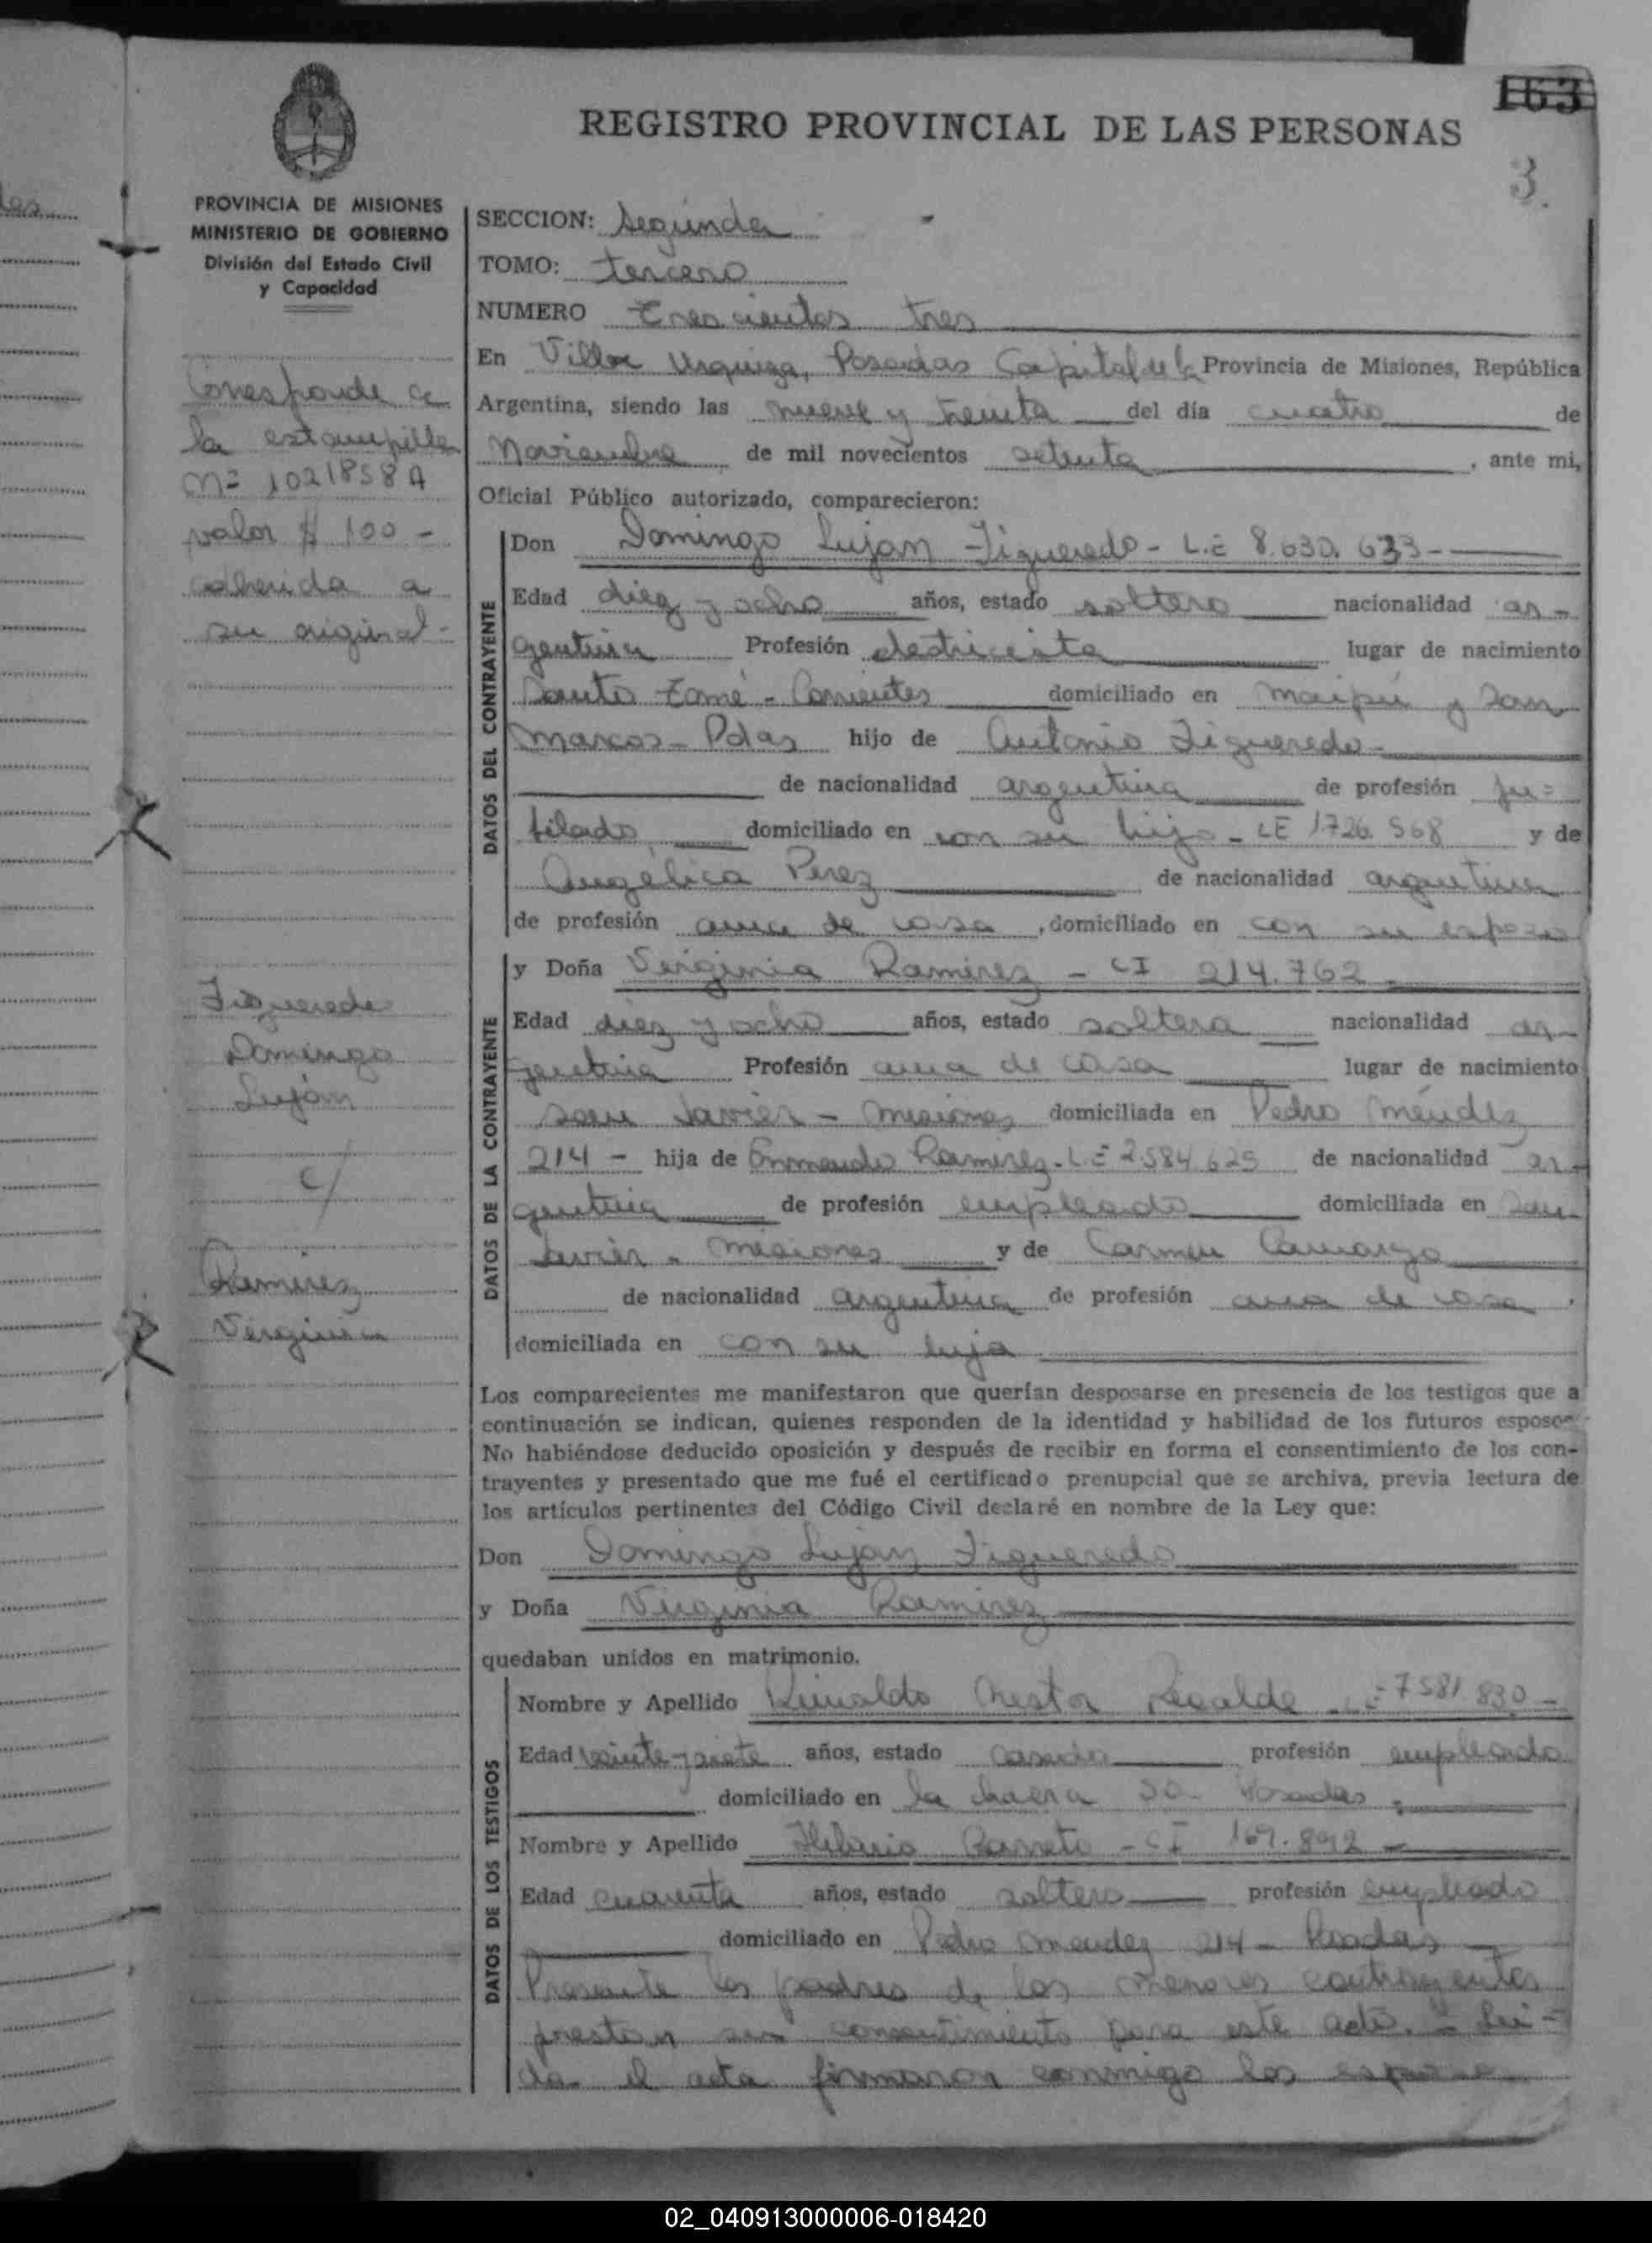 163
REGISTRO PROVINCIAL DE LAS PERSONAS
3.
PROVINCIA DE MISIONES
MINISTERIO DE GOBIERNO
División del Estado Civil
y Capacidad
Corresponde a
la estampilla
nº 1021858A
valor $ 100 -
adherida a
su original -
Figueredo
Domingo
Luján
c/
Ramirez
Verginia
SECCION: Segunda
TOMO: tercero
NUMERO Trescientos tres
En Villa Urquiza, Posadas Capital de la Provincia de Misiones, República
Argentina, siendo las nueve y treinta del día cuatro de
Noviembre de mil novecientos setenta, ante mi,
Oficial Público autorizado, comparecieron:
DATOS DEL CONTRAYENTE
Don Domingo Lujan Figueredo - L.E 8.630.633 -
Edad diez y ocho años, estado soltero nacionalidad ar-
gentina Profesión electricista lugar de nacimiento
Santo Tomé - Corrientes domiciliado en Maipú y San
Marcos - Pdas hijo de Antonio Figueredo -
de nacionalidad argentina de profesión ju=
bilado domiciliado en con su hijo - LE 1726.568 y de
Angélica Perez de nacionalidad argentina
de profesión ama de casa, domiciliado en con su esposo
DATOS DE LA CONTRAYENTE
y Doña Verginia Ramirez - CI 214.762
Edad diez y ocho años, estado soltera nacionalidad ar-
gentina Profesión ama de casa lugar de nacimiento
San Javier - Misiones domiciliada en Pedro Méndez
214 - hija de Ramirez - LE 2.584.625 de nacionalidad ar-
gentina de profesión empleado domiciliada en San
Javier - Misiones y de Carmen Camargo
de nacionalidad argentina de profesión ama de casa.
domiciliada en con su hija
Los comparecientes me manifestaron que querían desposarse en presencia de los testigos que a
continuación se indican, quienes responden de la identidad y habilidad de los futuros esposos
No habiéndose deducido oposición y después de recibir en forma el consentimiento de los con-
trayentes y presentado que me fué el certificado prenupcial que se archiva, previa lectura de
los artículos pertinentes del Código Civil declaré en nombre de la Ley que:
Don Domingo Lujan Figueredo
y Doña Virginia Ramirez
quedaban unidos en matrimonio.
DATOS DE LOS TESTIGOS
Nombre y Apellido Nestor Recalde LE 7581.830 -
Edad veinte y siete años, estado casado profesión empleado
domiciliado en la chacra 30 - Posadas
Nombre y Apellido Hilario Barreto - CI 169.892 -
Edad cuarenta años, estado soltero profesión empleado
domiciliado en Pedro Mendez 214 - Posadas
Presente los padres de los menores contrayentes
prestan su consentimiento para este acto. - Lei-
da el acta firmaron conmigo los esposos
02_040913000006-018420